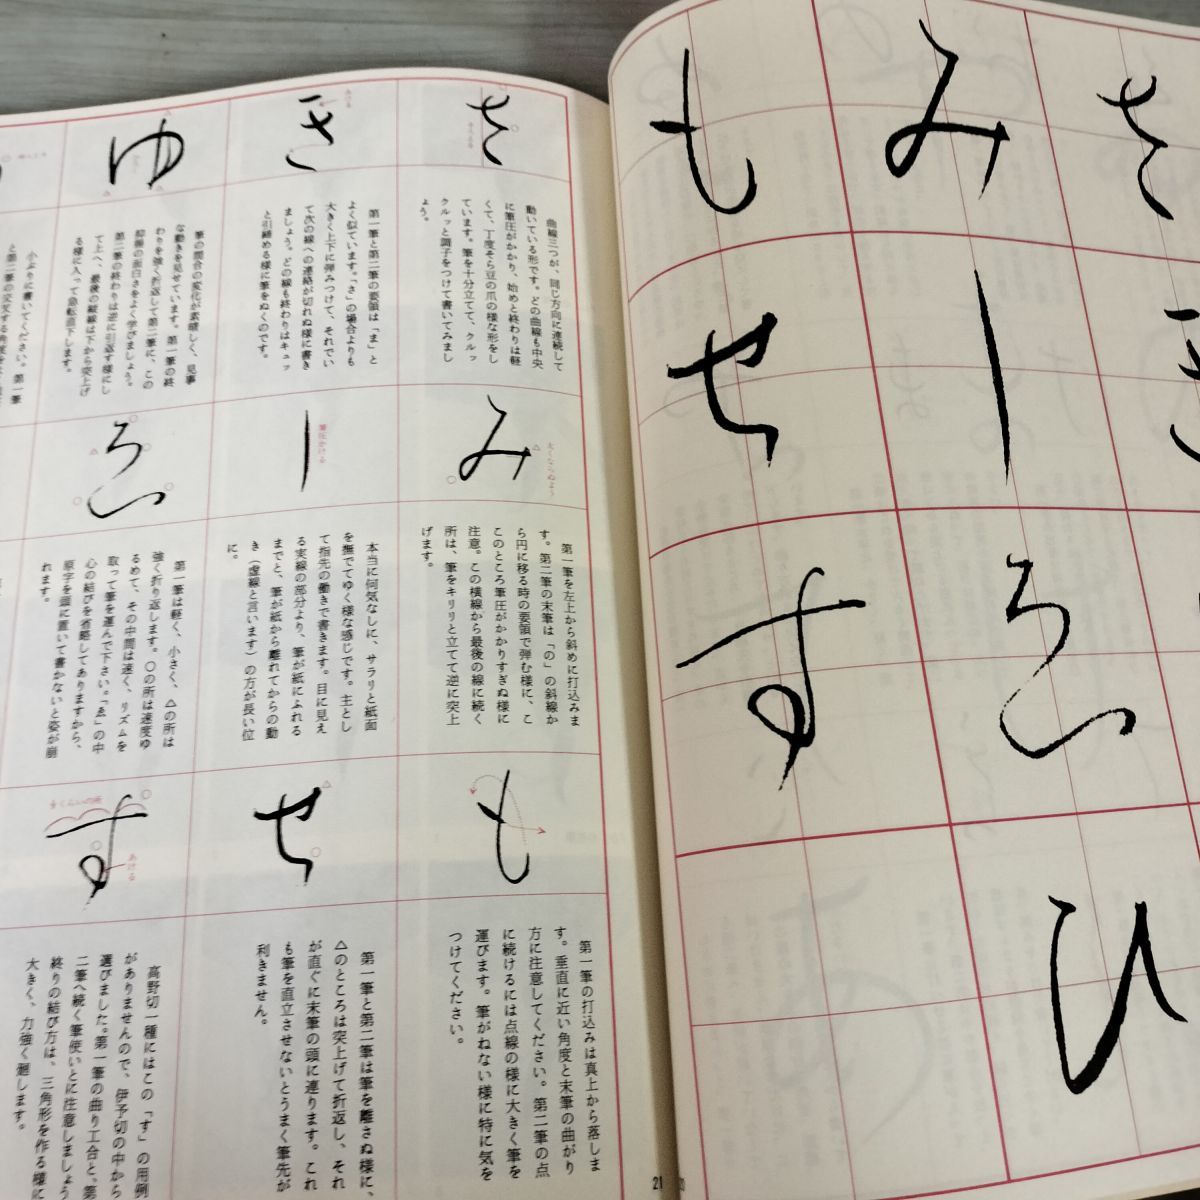 さ
曲線三つが、同じ方向に連続して
動いている形です。どの曲線も中央
に筆圧がかかり、始めと終わりは軽
くて、丁度そら豆の爪の様な形をし
ています。筆を十分立てて、クルッ
クルッと調子をつけて書いてみまし
ょう。
き
あける
第一筆と第二筆の要領は「ま」と
よく似ています。「さ」の場合よりも
大きく上下に弾みつけて、それでい
て次の線への連絡が切れぬ様に書き
ましょう。どの線も終わりはキュッ
と引締める様に筆をぬくのです。
ゆ
筆の開合の変化が素晴しく、見事
な動きを見せています。第一筆の終
わりを強く折返して第二筆に、この
抑揚の面白さをよく学びましょう。
第二筆の終わりは逆に引返す様にし
て上へ、最後の縦線は下から突上げ
る様に入って急転直下します。
小ぶりに書いてください。第一筆
と第二筆の交叉する角度を
み
太くならぬよう
第一筆を左上から斜めに打込みま
す。第二筆の末筆は「の」の斜線か
ら円に移る時の要領で弾む様に、こ
このところ筆圧がかかりすぎぬ様に
注意。この横線から最後の線に続く
所は、筆をキリリと立てて逆に突上
げます。
し
筆圧かける
本当に何気なしに、サラリと紙面
を撫でてゆく様な感じです。主とし
て指先の働きで書きます。目に見え
る実線の部分より、筆が紙にふれる
までと、筆が紙から離れてからの動
き（虚線と言います）の方が長い位
に。
ゑ
第一筆は軽く、小さく、△の所は
強く折り返します。○の所は速度ゆ
るめて、その中間は速く、リズムを
取って筆を運んで下さい。「ゑ」の中
心の結びを省略してありますから、
原字を頭に置いて書かないと姿が崩
れます。
も
第一筆の打込みは真上から落しま
す。垂直に近い角度と末筆の曲がり
方に注意してください。第二筆の点
に続けるには点線の様に大きく筆を
運びます。筆がねない様に特に気を
つけてください。
せ
第一筆と第二筆は筆を離さぬ様に、
△のところは突上げて折返し、それ
が直ぐに末筆の頭に連ります。これ
も筆を直立させないとうまく筆先が
利きません。
す
あける
高野切一種にはこの「す」の用例
がありませんので、伊予切の中から
選びました。第一筆の曲り工合と。第
二筆へ続く筆使いとに注意しましょう
終りの結び方は、三角形を作る様に
大きく、力強く廻します。
21
さ
き
み
し
ゑ
ひ
も
せ
す